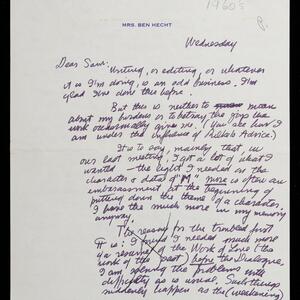 1960's
P.
MRS. BEN HECHT
Wednesday
Dear Sam:
Writing, or editing, or whatever
it is I'm doing, is an odd business. I'm
glad I've done this before.
But this is neither to moan
about my burdens or to betray the joys this
work occasionally gives me. (You see how I
am under the influence of Advice.)
It is to say, mainly, that in
our last meeting, I got a lot of what I
wanted — the light I needed on the
character & data of "M." There is
embarrassment at the beginning of
putting down the name of a character.
I have the much more in my memory
anyway.
The reason for the trouble first
is: I found I needed much more
of a resume of the Work of
the work of the past before the Dialogue.
I am solving the problems with
difficulty as is usual. Such things
suddenly happen as the (weakening)